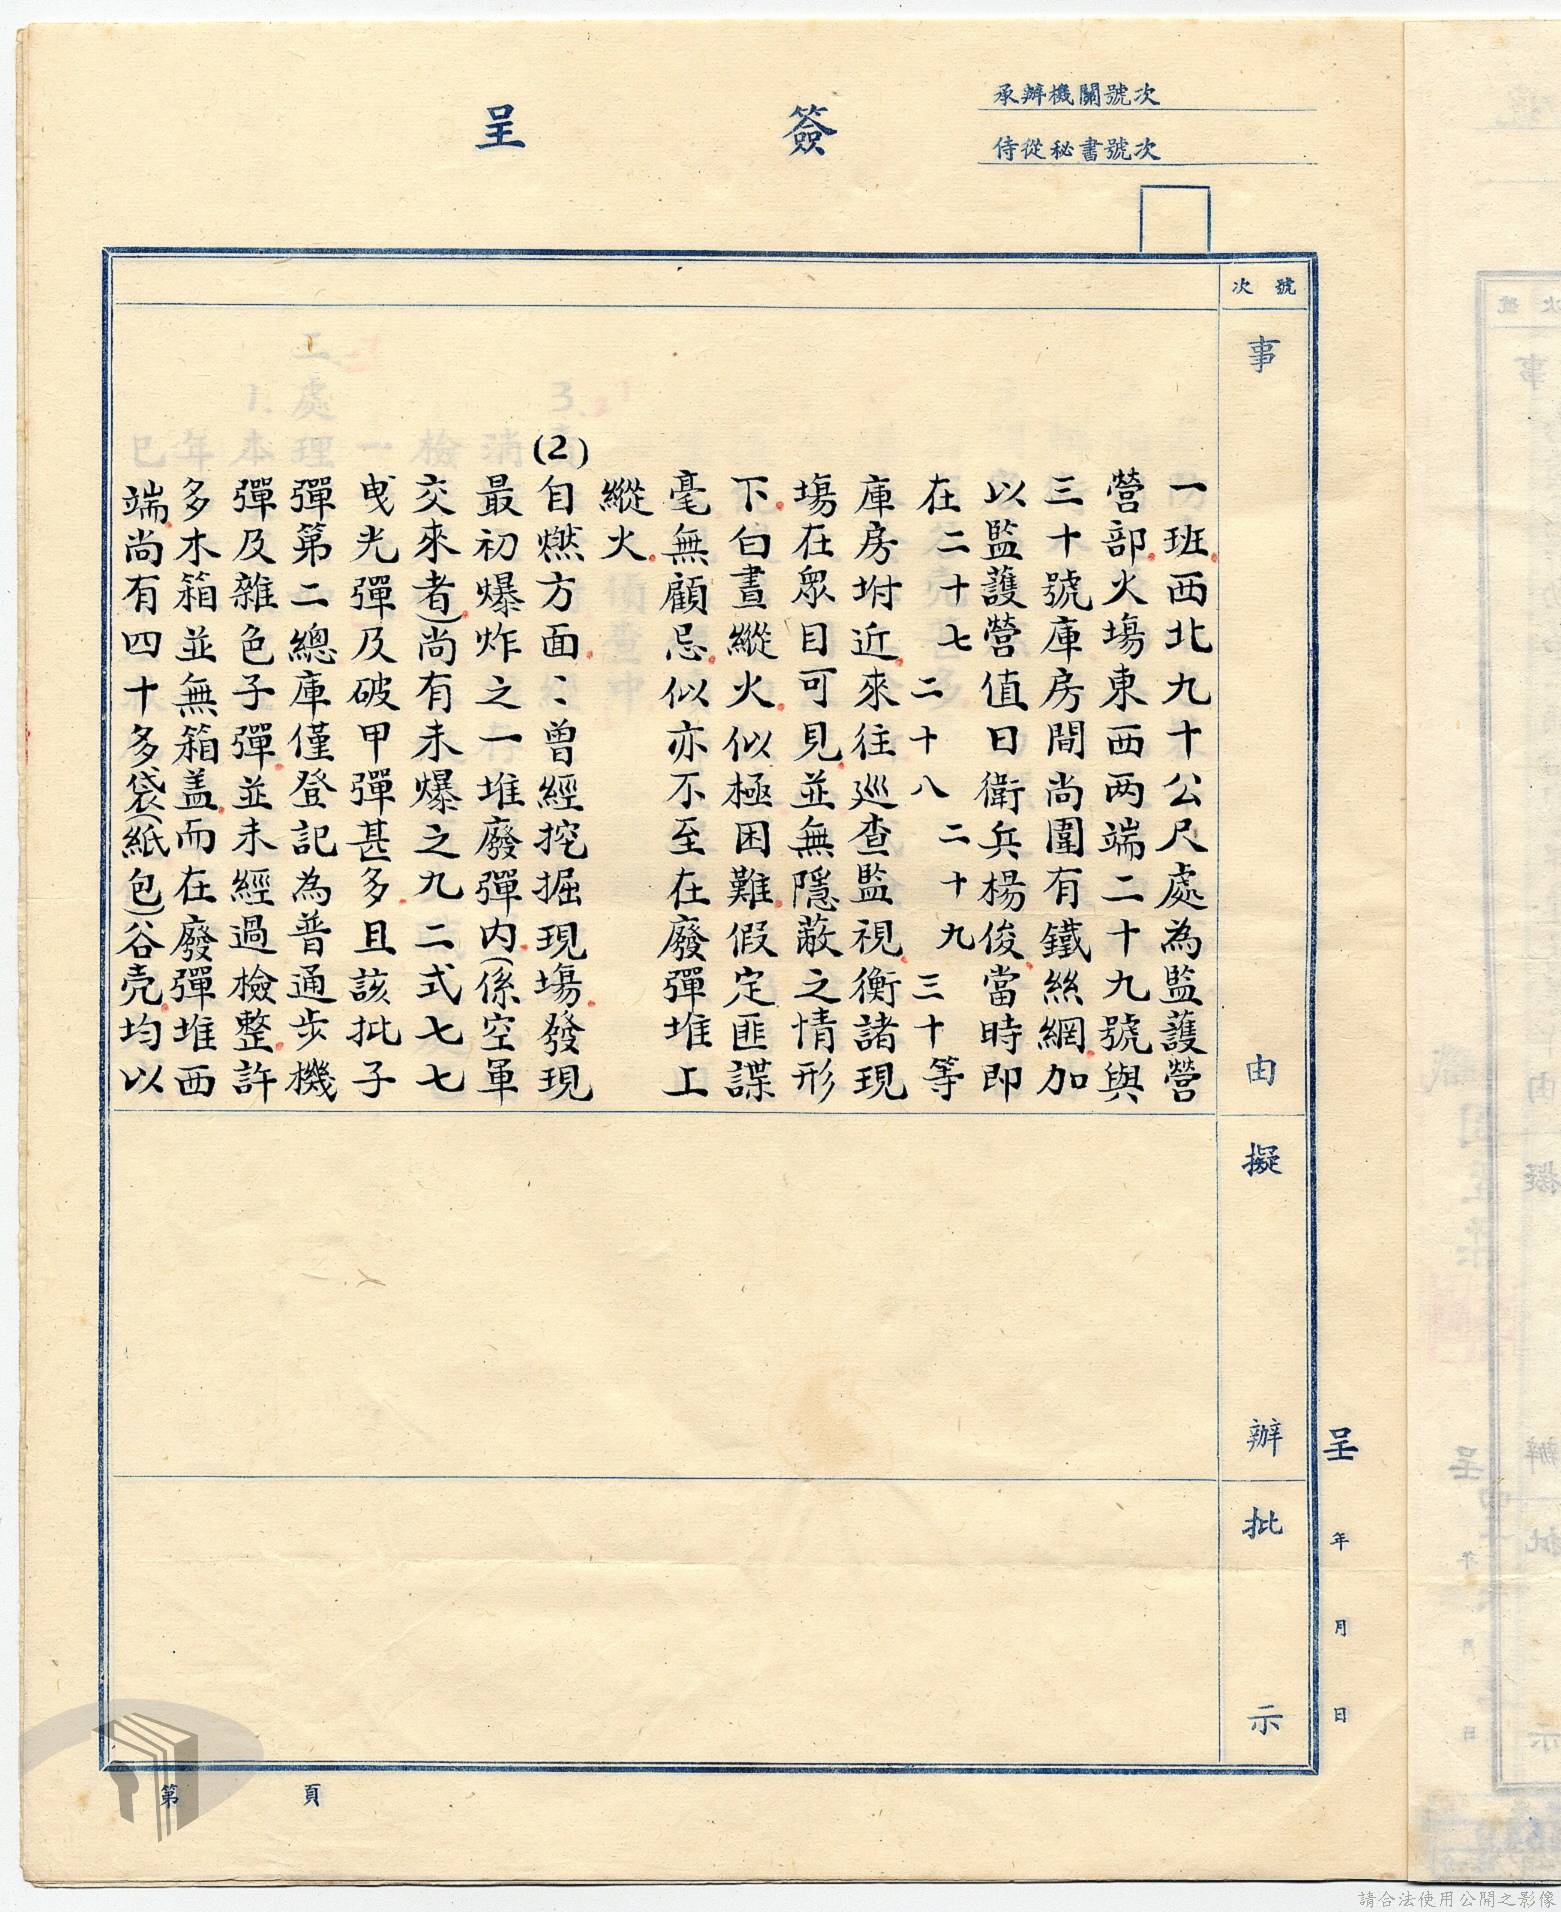 簽呈
承辦機關號次
侍從秘書號次
號次
事由
擬辦
批示
一班西北九十公尺處為監護營
營部火場東西两端二十九號與
三十號庫房間尚圍有鐵絲網加
以監護營值日衛兵楊俊當時即
在二十七二十八二十九三十等
庫房坿近來往廵查監視衡諸現
塲在眾目可見並無隱蔽之情形
下白晝縱火似極困難假定匪諜
毫無顧忌似亦不至在廢彈堆上
縱火
(2)自燃方面：曾經挖掘現塲發現
最初爆炸之一堆廢彈内(係空軍
交來者)尚有未爆之九二式七七
曳光彈及破甲彈甚多且該批子
彈第二總庫僅登記為普通步機
彈及雜色子彈並未經過檢整許
多木箱並無箱盖而在廢彈堆西
端尚有四十多袋(紙包)谷壳均以
呈 年 月 日
第 頁
請合法使用公開之影像